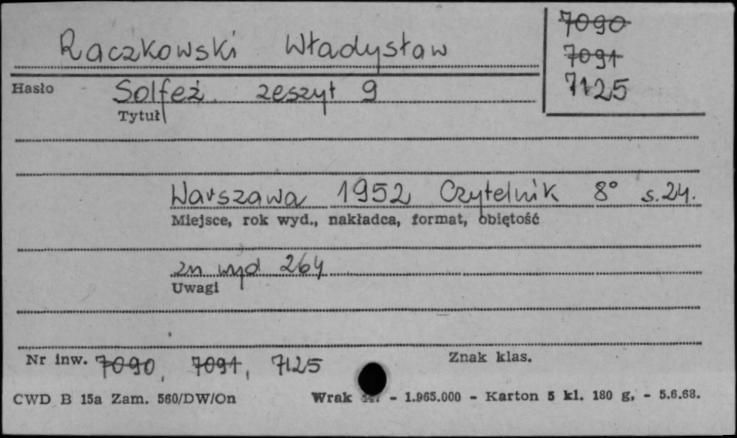 7090
7091
7125
Raczkowski Władysław
Hasło
Solfeż. zeszyt 9
Tytuł
Warszawa 1952 Czytelnik 8° s. 24.
Miejsce, rok wyd., nakładca, format, objętość
zn wyd 264
Uwagi
Nr inw. 7090, 7091, 7125 Znak klas.
CWD B 15a Zam. 560/DW/On Wrak - 1.965.000 - Karton 5 kl. 180 g. - 5.6.68.